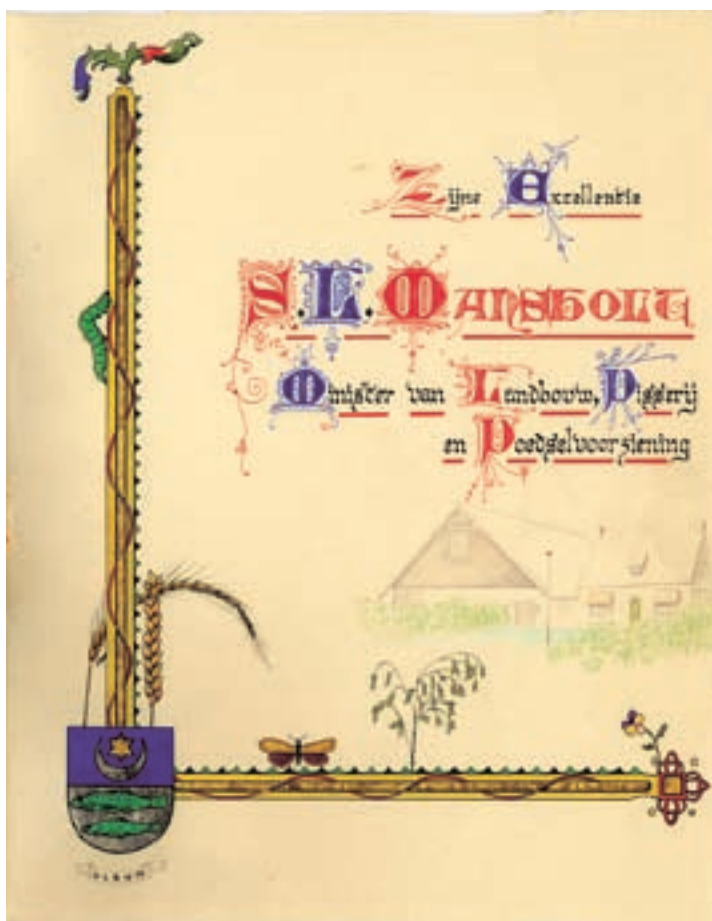 Zijne Excellentie
S.L. Mansholt
Minister van Landbouw, Visserij
en Voedselvoorziening
ULRUM